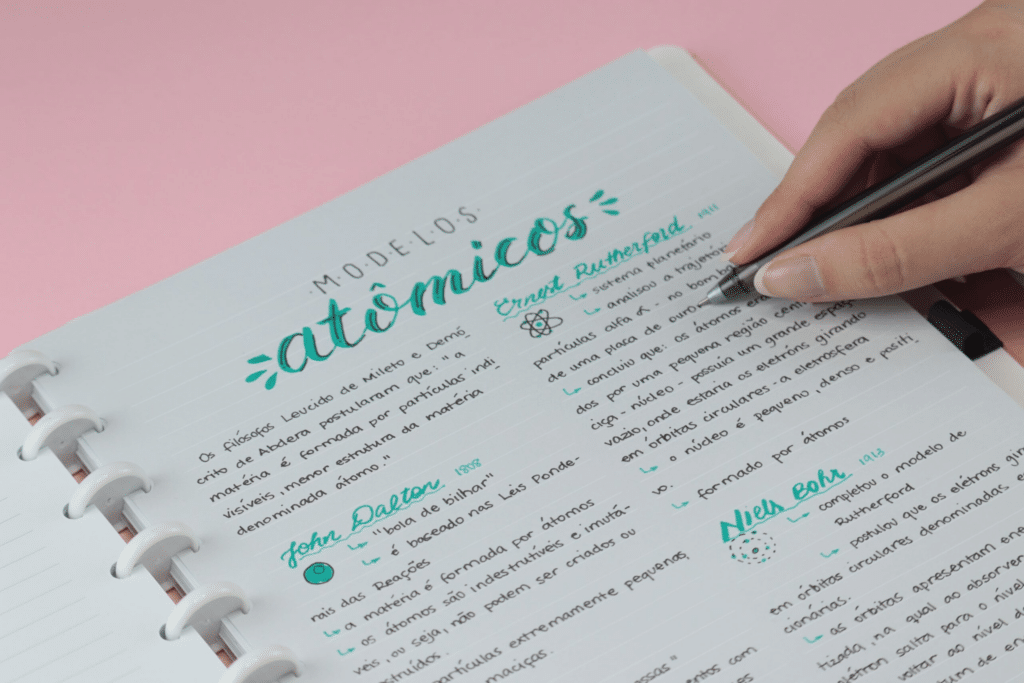 ·M·O·D·E·L·O·S·
atômicos
Os filósofos Leucido de Mileto e Demó
crito de Abdera postularam que: "a
matéria é formada por partículas indi
visíveis, menor estrutura da matéria
denominada átomo."
John Dalton 1808
"bola de bilhar"
é baseado nas Leis Ponde-
rais das Reações
a matéria é formada por átomos
os átomos são indestrutíveis e imutá-
veis, ou seja, não podem ser criados ou
partículas extremamente pequenas,
maciças.
Ernest Rutherford 1911
sistema planetário
analisou a
partículas alfa α - no
de uma placa de ouro
concluiu que: os átomos
dos por uma pequena região
ciça - núcleo - possuía um grande
vazio, onde estaria os eletróns girando
em órbitas circulares - a eletrosfera
o núcleo é pequeno, denso e positi
vo.
formado por átomos
Niels Bohr 1913
completou o modelo de
Rutherford
postulou que os elétrons
em órbitas circulares denominadas
cionárias.
as órbitas apresentam
tizada, na qual ao absorver
salta para o nível
voltar ao nível
de
com